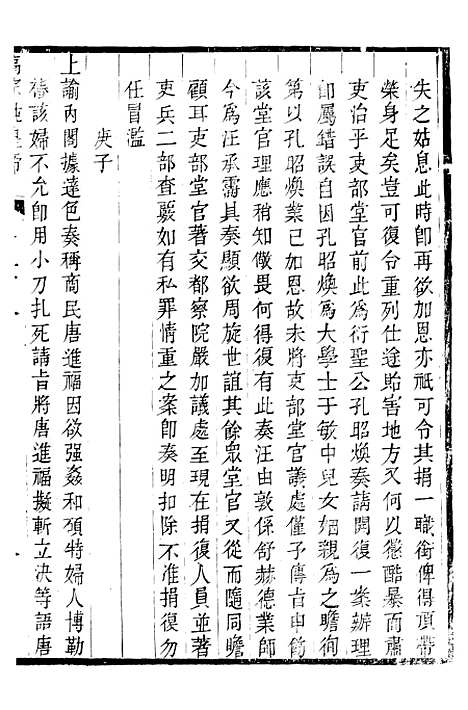 失之姑息此時卽再欲加恩亦祇可令其捐一職銜俾得頂帶
榮身足矣豈可復令重列仕途貽害地方又何以懲酷暴而肅
吏治乎吏部堂官前此爲衍聖公孔昭煥奏請開復一案辦理
卽屬錯誤自因孔昭煥爲大學士于敏中兒女姻親爲之瞻徇
第以孔昭煥業已加恩故未將吏部堂官議處僅予傳旨申飭
該堂官理應稍知儆畏何得復有此奏汪由敦係舒赫德業師
今爲汪承霈具奏顯欲周旋世誼其餘衆堂官又從而隨同瞻
顧耳吏部堂官著交都察院嚴加議處至現在捐復人員並著
吏兵二部查覈如有私罪情重之案卽奏明扣除不准捐復勿
任冒濫
庚子
上諭內閣據達色奏稱商民唐進福因欲强姦和碩特婦人博勒
椿該婦不允卽用小刀扎死請旨將唐進福擬斬立決等語唐